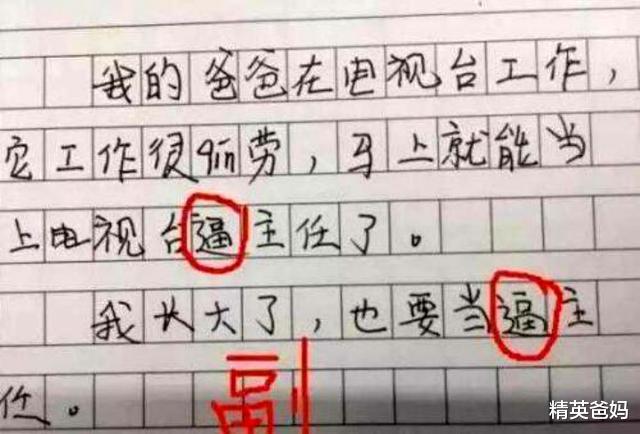 我的爸爸在电视台工作，
它工作很qin劳，马上就能当
上电视台逼主任了。
我长大了，也要当逼主
任。
副
精英爸妈